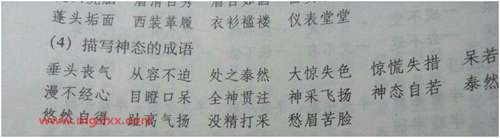 蓬头垢面 西装革履 衣衫褴褛 仪表堂堂
（4）描写神态的成语
垂头丧气 从容不迫 处之泰然 大惊失色 惊慌失措 呆若
漫不经心 目瞪口呆 全神贯注 神采飞扬 神态自若 泰然
悠然自得 趾高气扬 没精打采 愁眉苦脸